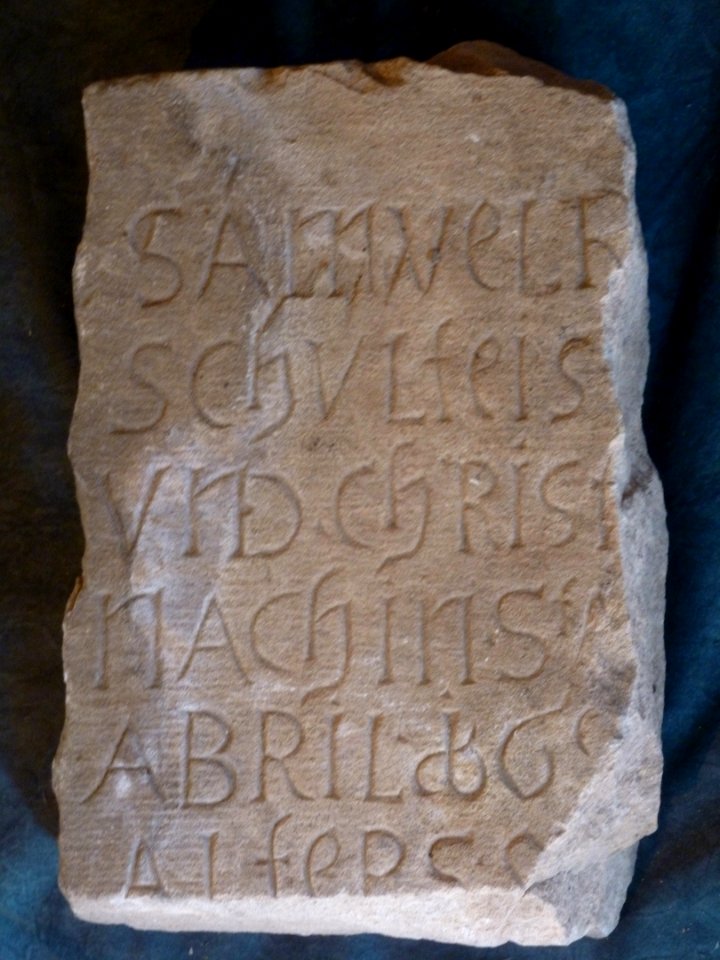 SAMVEL F
SCHVLTEIS
VND CHRIST
NACH INS
ABRIL
ALTERS